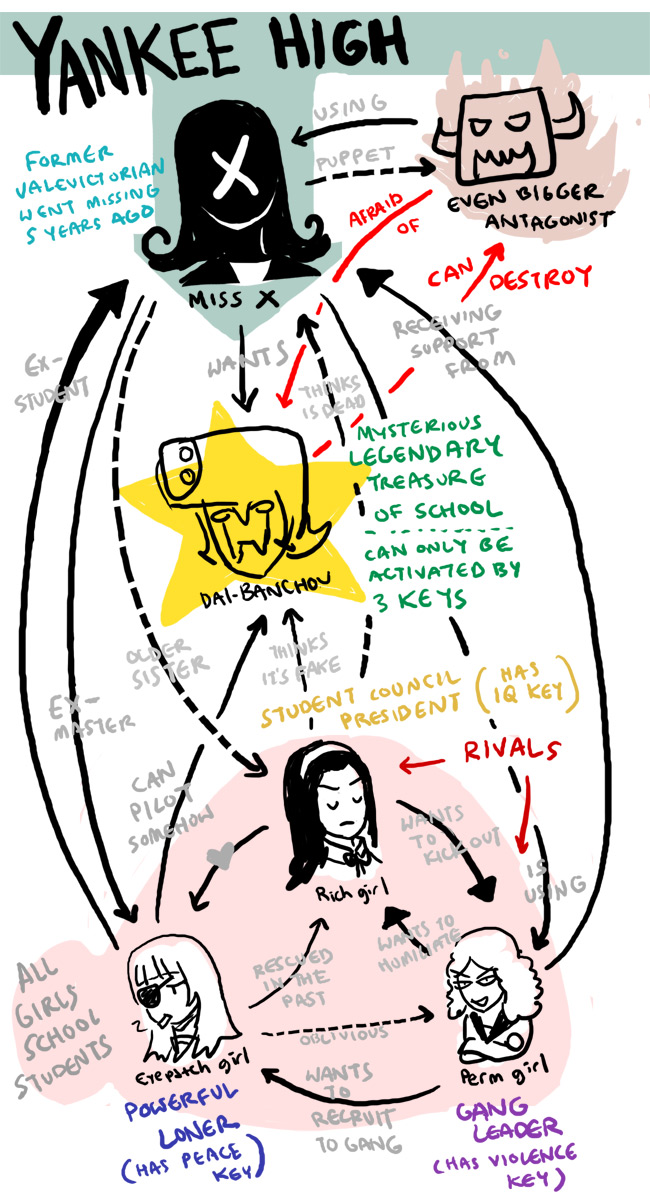 YANKEE HIGH
USING
PUPPET
EVEN BIGGER
ANTAGONIST
FORMER
VALEVICTORIAN
WENT MISSING
5 YEARS AGO
X
MISS X
AFRAID
OF
CAN DESTROY
EX-
STUDENT
WANTS
THINKS
IS DEAD
RECEIVING
SUPPORT
FROM
MYSTERIOUS
LEGENDARY
TREASURE
OF SCHOOL
CAN ONLY BE
ACTIVATED BY
3 KEYS
DAI-BANCHOU
OLDER
SISTER
THINKS
IT'S FAKE
EX-
MASTER
STUDENT COUNCIL
PRESIDENT
(HAS
IQ KEY)
RIVALS
CAN
PILOT
SOMEHOW
WANTS
TO
KICK OUT
IS
USING
Rich girl
WANTS TO
HUMILIATE
RESCUED
IN THE
PAST
ALL
GIRLS
SCHOOL
STUDENTS
OBLIVIOUS
Eyepatch girl
Perm girl
WANTS
TO
RECRUIT
TO GANG
POWERFUL
LONER
(HAS PEACE
KEY)
GANG
LEADER
(HAS VIOLENCE
KEY)